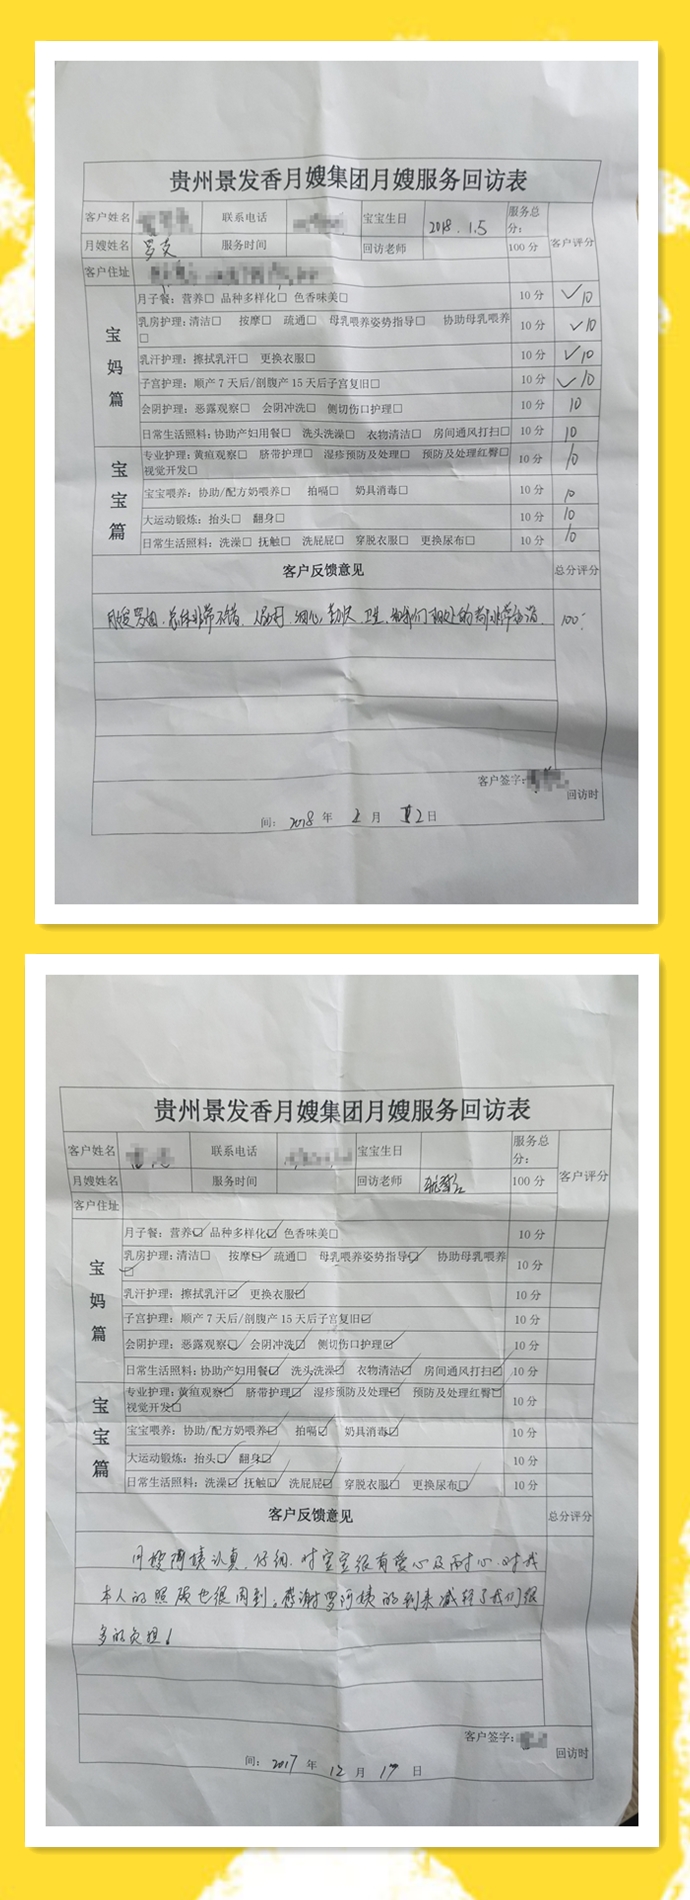 贵州景发香月嫂集团月嫂服务回访表
客户姓名 联系电话 宝宝生日 2018.1.5 服务总分: 客户评分
月嫂姓名 罗 服务时间 回访老师 100分
客户住址
宝妈篇
月子餐: 营养□ 品种多样化□ 色香味美□ 10分 ✓10
乳房护理: 清洁□ 按摩□ 疏通□ 母乳喂养姿势指导□ 协助母乳喂养□ 10分 ✓10
乳汗护理: 擦拭乳汗□ 更换衣服□ 10分 ✓10
子宫护理: 顺产7天后/剖腹产15天后子宫复旧□ 10分 ✓10
会阴护理: 恶露观察□ 会阴冲洗□ 侧切伤口护理□ 10分 10
日常生活照料: 协助产妇用餐□ 洗头洗澡□ 衣物清洁□ 房间通风打扫□ 10分 10
宝宝篇
专业护理: 黄疸观察□ 脐带护理□ 湿疹预防及处理□ 预防及处理红臀□ 视觉开发□ 10分 10
宝宝喂养: 协助/配方奶喂养□ 拍嗝□ 奶具消毒□ 10分 10
大运动锻炼: 抬头□ 翻身□ 10分 10
日常生活照料: 洗澡□ 抚触□ 洗屁屁□ 穿脱衣服□ 更换尿布□ 10分 10
客户反馈意见 总分评分
月嫂罗姐,总体非常不错,人好,细心,勤快,卫生,和我们相处的都非常 100
客户签字:
回访时
间: 2018年 2月 12日
贵州景发香月嫂集团月嫂服务回访表
客户姓名 联系电话 宝宝生日 服务总分: 客户评分
月嫂姓名 服务时间 回访老师 100分
客户住址
宝妈篇
月子餐: 营养☑ 品种多样化☑ 色香味美□ 10分
乳房护理: 清洁□ 按摩☑ 疏通□ 母乳喂养姿势指导☑ 协助母乳喂养☑ 10分
乳汗护理: 擦拭乳汗☑ 更换衣服☑ 10分
子宫护理: 顺产7天后/剖腹产15天后子宫复旧☑ 10分
会阴护理: 恶露观察☑ 会阴冲洗☑ 侧切伤口护理☑ 10分
日常生活照料: 协助产妇用餐☑ 洗头洗澡☑ 衣物清洁☑ 房间通风打扫☑ 10分
宝宝篇
专业护理: 黄疸观察☑ 脐带护理☑ 湿疹预防及处理☑ 预防及处理红臀☑ 视觉开发☑ 10分
宝宝喂养: 协助/配方奶喂养☑ 拍嗝☑ 奶具消毒☑ 10分
大运动锻炼: 抬头☑ 翻身☑ 10分
日常生活照料: 洗澡☑ 抚触☑ 洗屁屁☑ 穿脱衣服☑ 更换尿布☑ 10分
客户反馈意见 总分评分
月嫂阿姨认真,仔细,对宝宝很有爱心及耐心,对我
本人的照顾也很周到,感谢罗阿姨的到来减轻了我们很
多的负担!
客户签字:
回访时
间: 2017年 12月 17日